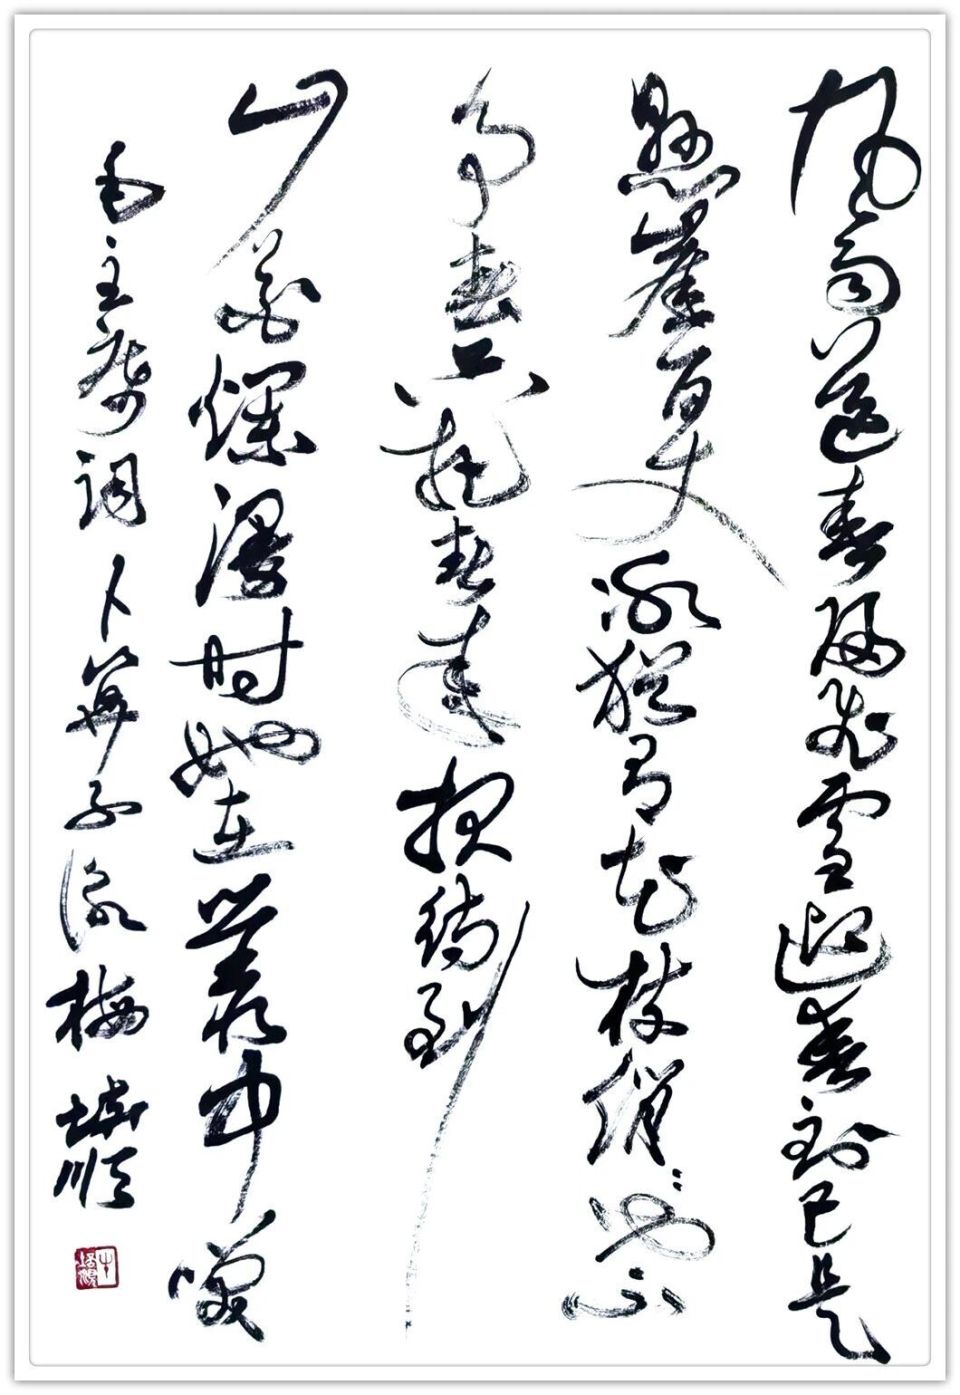 风雨送春歸飛雪迎春到已是
懸崖百丈冰猶有花枝俏〻也不
争春只把春来报待到
山花爛漫时她在叢中笑
毛主席词卜算子咏梅 培顺